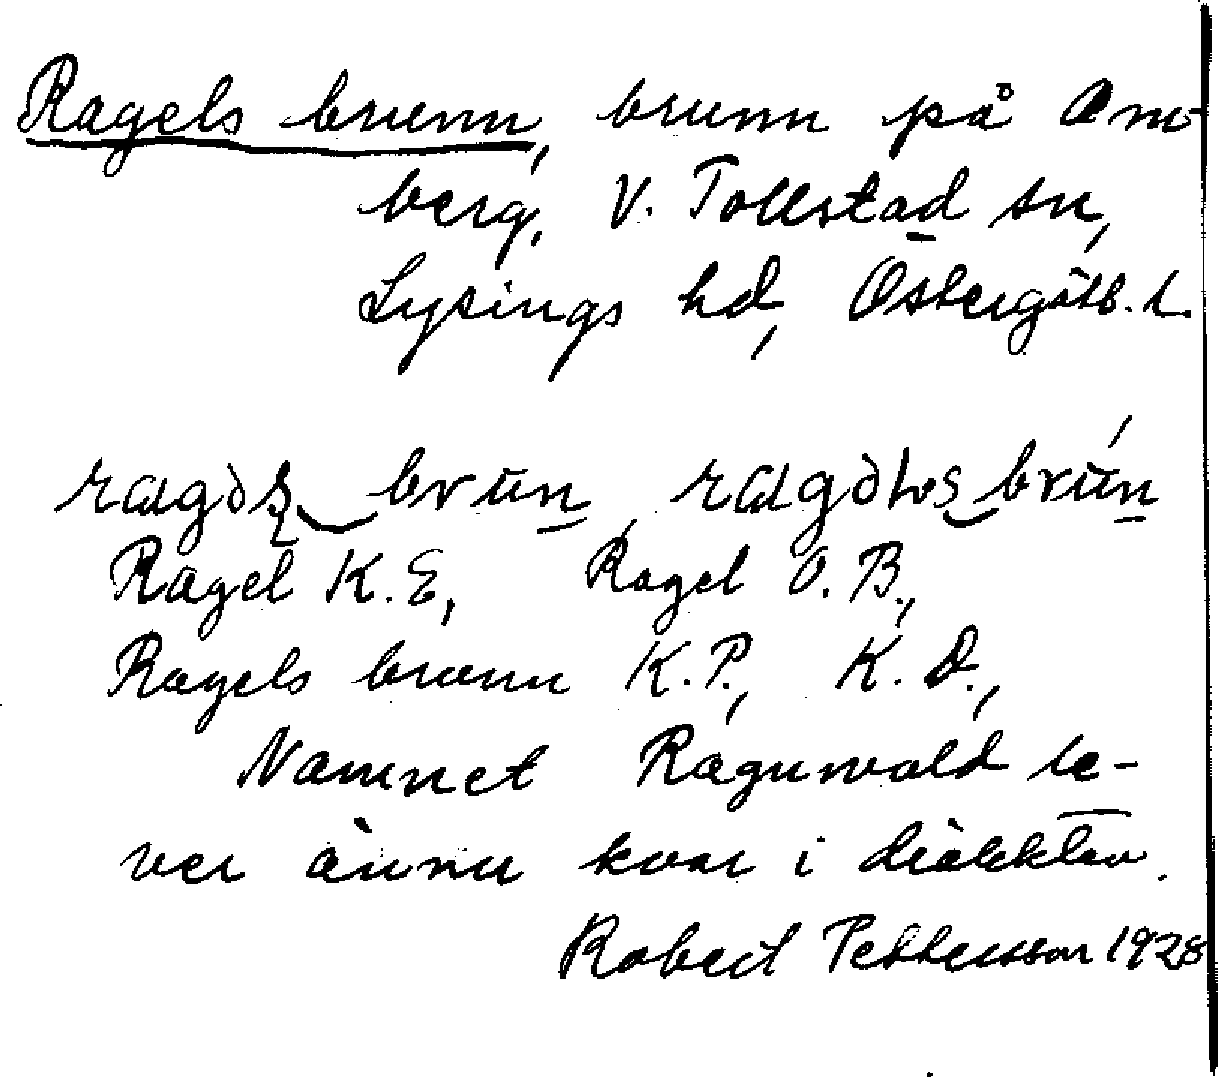 Ragels brunn, brunn på Om-
berg, V. Tollstad sn,
Lysings hd, Östergötl. l.
Ragel K.E, Ragel O.B.,
Ragels brunn K.P., K.D.,
Namnet Ragnvald le-
ver ännu kvar i dialekten.
Robert Pettersson 1928